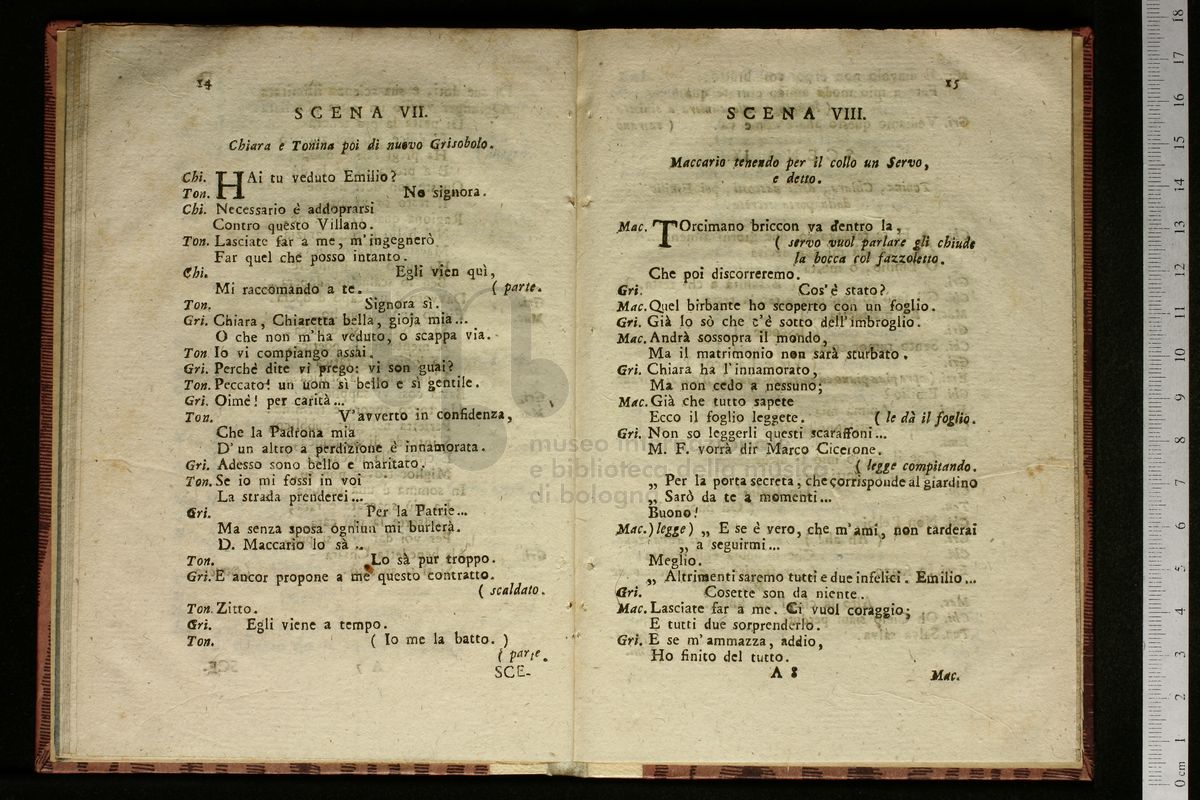 14
SCENA VII.
Chiara e Tonina poi di nuovo Grisobolo.
Chi. HAi tu veduto Emilio?
Ton. No signora.
Chi. Necessario è addoprarsi
Contro questo Villano.
Ton. Lasciate far a me, m'ingegnerò
Far quel che posso intanto.
Chi. Egli vien quì,
Mi raccomando a te. ( parte.
Ton. Signora sì.
Gri. Chiara, Chiaretta bella, gioja mia...
O che non m'ha veduto, o scappa via.
Ton. Io vi compiango assai.
Gri. Perchè dite vi prego: vi son guai?
Ton. Peccato! un uom sì bello e sì gentile.
Gri. Oimè! per carità...
Ton. V'avverto in confidenza,
Che la Padrona mia
D'un altro a perdizione è innamorata.
Gri. Adesso sono bello e maritato.
Ton. Se io mi fossi in voi
La strada prenderei...
Gri. Per la Patrie...
Ma senza sposa ogniun mi burlerà.
D. Maccario lo sà ..
Ton. Lo sà pur troppo.
Gri. E ancor propone a me questo contratto.
( scaldato.
Ton. Zitto.
Gri. Egli viene a tempo.
Ton. ( Io me la batto. )
( parte.
SCE-
15
SCENA VIII.
Maccario tenendo per il collo un Servo,
e detto.
Mac. TOrcimano briccon va dentro la,
( servo vuol parlare gli chiude
la bocca col fazzoletto.
Che poi discorreremo.
Gri. Cos'è stato?
Mac. Quel birbante ho scoperto con un foglio.
Gri. Già lo sò che c'è sotto dell'imbroglio.
Mac. Andrà sossopra il mondo,
Ma il matrimonio non sarà sturbato.
Gri. Chiara ha l'innamorato,
Ma non cedo a nessuno;
Mac. Già che tutto sapete
Ecco il foglio leggete. ( le dà il foglio.
Gri. Non so leggerli questi scaraffoni...
M. F. vorrà dir Marco Cicerone.
( legge compitando.
„ Per la porta secreta, che corrisponde al giardino
„ Sarò da te a momenti...
Buono!
Mac. ) legge) „ E se è vero, che m'ami, non tarderai
„ a seguirmi...
Meglio.
„ Altrimenti saremo tutti e due infelici. Emilio...
Gri. Cosette son da niente.
Mac. Lasciate far a me. Ci vuol coraggio;
E tutti due sorprenderlo.
Gri. E se m'ammazza, addio,
Ho finito del tutto.
A 8
Mac.
museo
e biblioteca della musica
di bologna